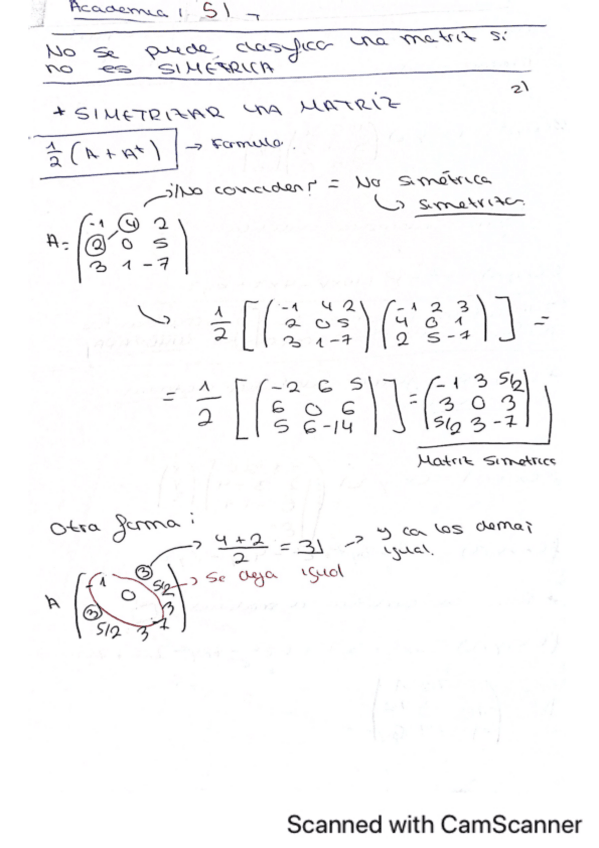 Academia : S1
No se puede clasifica una matriz si
no es SIMÉTRICA
2)
* SIMETRIZAR UNA MATRIZ
1/2 (A + Aᵗ) → Formula.
¡¡No coinciden! = No simétrica
↳ simetrizar
A = (-1 4 2
2 0 5
3 1 -7)
1/2 [(-1 4 2 (-1 2 3
2 0 5 4 0 1
3 1 -7) 2 5 -7)] =
= 1/2 [(-2 6 5 = (-1 3 5/2
6 0 6 3 0 3
5 6 -14)] 5/2 3 -7)
Matriz Simetrica
Otra forma :
→ 4+2/2 = 3 → y ca los demas
igual.
→ se deja igual
A (-1 3 5/2
3 0 3
5/2 3 -7)
Scanned with CamScanner